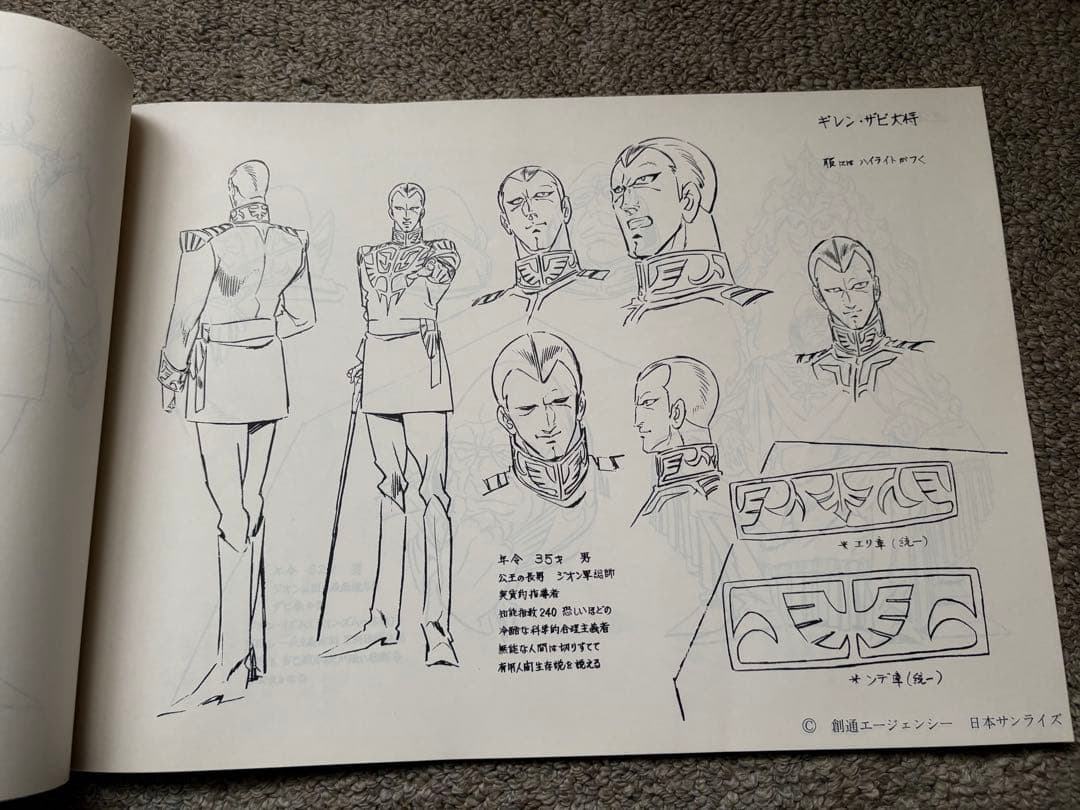 ギレン・ザビ大将
服にはハイライトがつく
年令 35才 男
公王の長男 ジオン軍総帥
実質的指導者
知能指数240 恐しいほどの
冷酷な科学的合理主義者
無能な人間は切りすてて
有用人間生存説を唱える
＊エリ章(統一)
＊ソデ章(統一)
© 創通エージェンシー 日本サンライズ